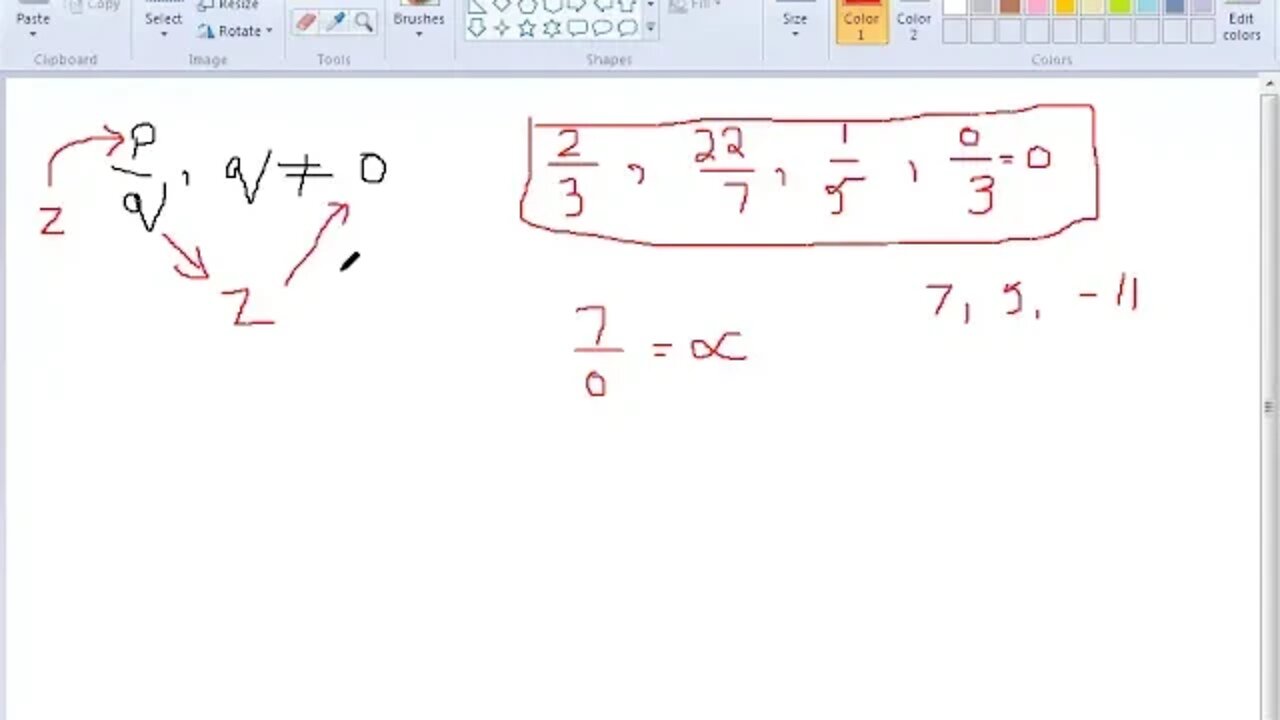 Paste
Copy
Select
Resize
Rotate
Brushes
Size
Color 1
Color 2
Edit colors
Fill
Clipboard
Image
Tools
Shapes
Colors
p/q, q ≠ 0
2/3, 22/7, 1/5, 0/3 = 0
Z
Z
7, 5, -11
7/0 = ∝